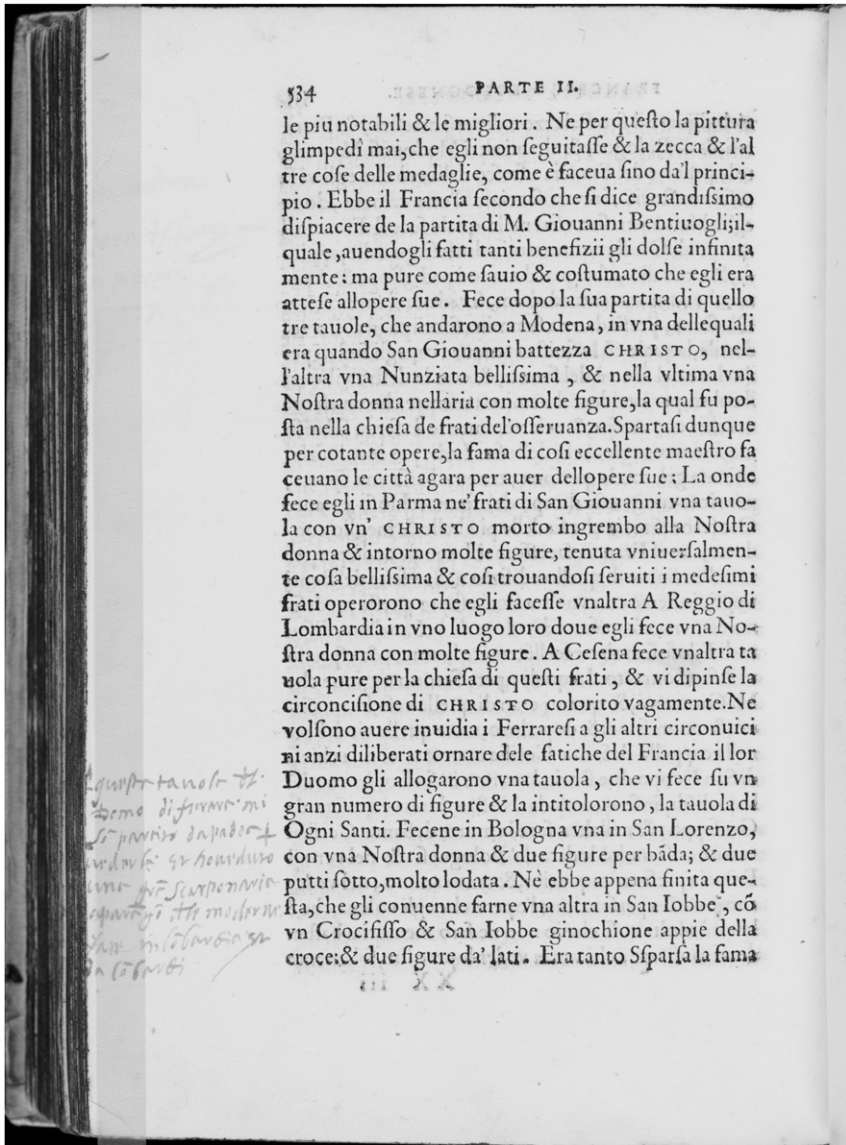 534 PARTE II.
le piu notabili & le migliori. Ne per queſto la pittura
glimpedì mai, che egli non ſeguitaſſe & la zecca & l'al
tre coſe delle medaglie, come è faceua ſino da'l princi-
pio. Ebbe il Francia ſecondo che ſi dice grandiſsimo
diſpiacere de la partita di M. Giouanni Bentiuogli; il-
quale, auendogli fatti tanti benefizii gli dolſe infinita
mente: ma pure come ſauio & coſtumato che egli era
atteſe allopere ſue. Fece dopo la ſua partita di quello
tre tauole, che andarono a Modena, in vna dellequali
era quando San Giouanni battezza CHRISTO, nel-
l'altra vna Nunziata belliſsima, & nella vltima vna
Noſtra donna nellaria con molte figure, la qual fu po-
ſta nella chieſa de frati del'oſſeruanza. Spartaſi dunque
per cotante opere, la fama di coſi eccellente maeſtro fa
ceuano le città agara per auer dellopere ſue: La onde
fece egli in Parma ne' frati di San Giouanni vna tauo-
la con vn' CHRISTO morto ingrembo alla Noſtra
donna & intorno molte figure, tenuta vniuerſalmen-
te coſa belliſsima & coſi trouandoſi ſeruiti i medeſimi
frati operorono che egli faceſſe vnaltra A Reggio di
Lombardia in vno luogo loro doue egli fece vna No-
ſtra donna con molte figure. A Ceſena fece vnaltra ta
uola pure per la chieſa di queſti frati, & vi dipinſe la
circonciſione di CHRISTO colorito vagamente. Ne
volſono auere inuidia i Ferrareſi a gli altri circonuici
ni anzi diliberati ornare dele fatiche del Francia il lor
Duomo gli allogarono vna tauola, che vi fece ſu vn
gran numero di figure & la intitolorono, la tauola di
Ogni Santi. Fecene in Bologna vna in San Lorenzo,
con vna Noſtra donna & due figure per bāda; & due
putti ſotto, molto lodata. Ne ebbe appena finita que-
ſta, che gli conuenne farne vna altra in San Iobbe, cō
vn Crocifiſſo & San Iobbe ginochione appie della
croce; & due figure da' lati. Era tanto Sſparſa la fama